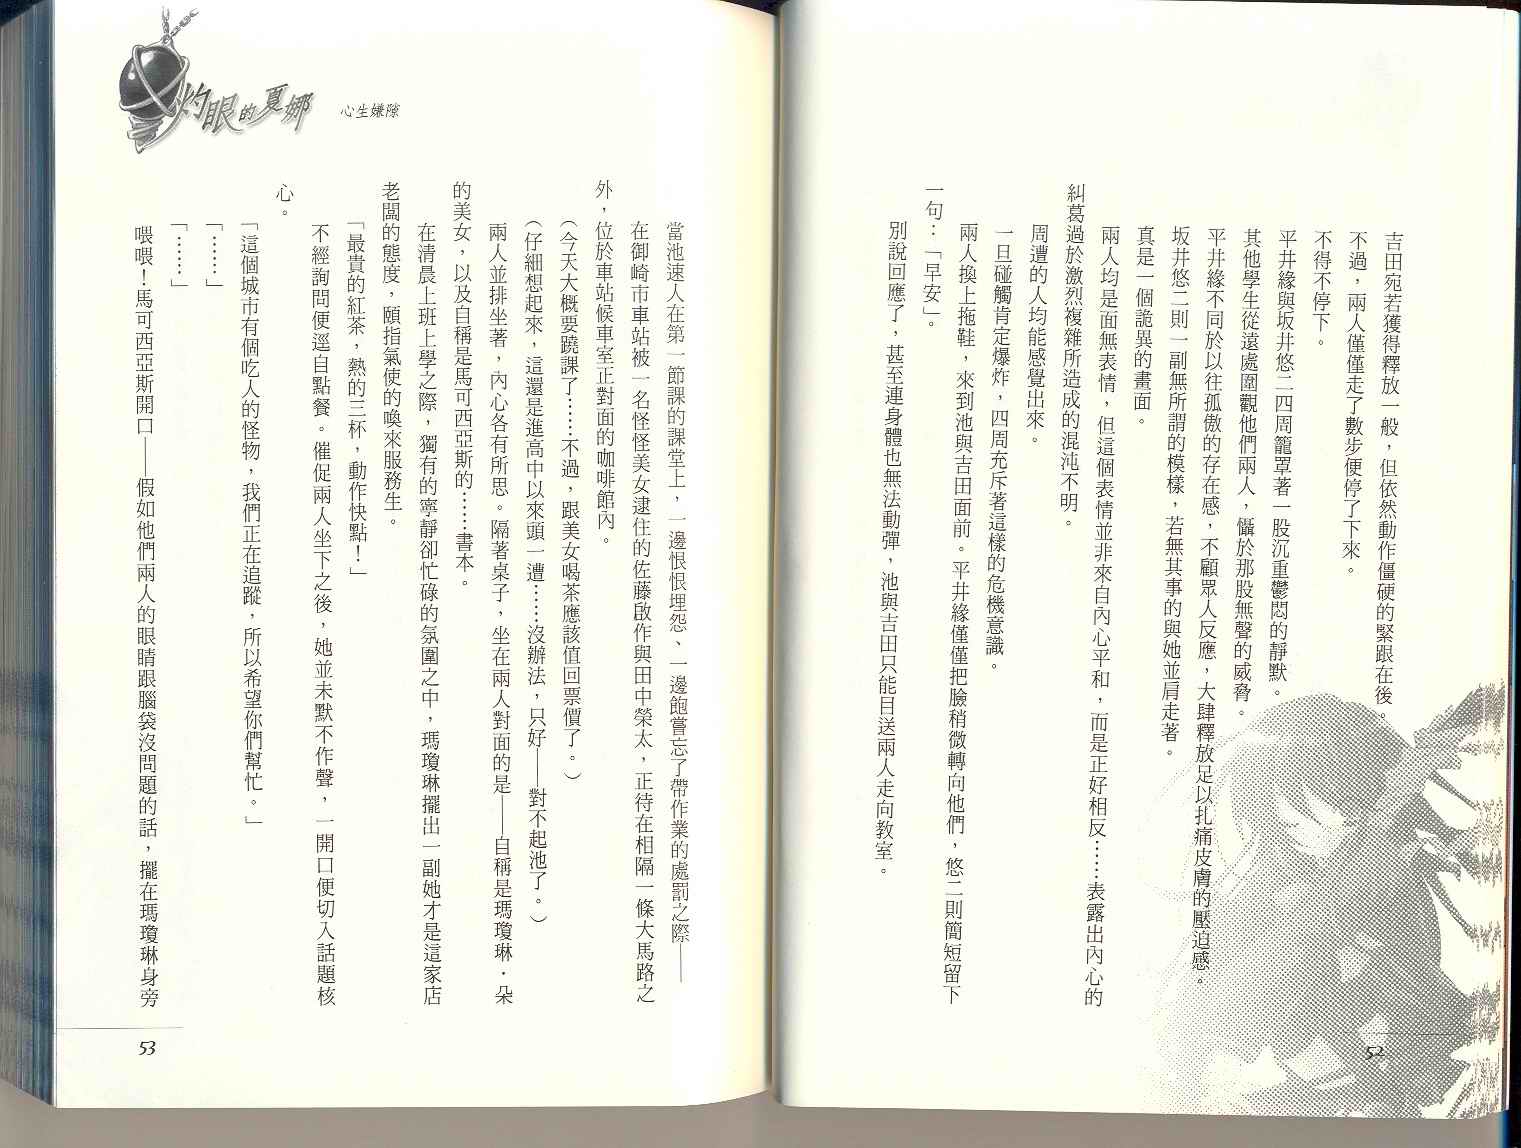 吉田宛若獲得釋放一般，但依然動作僵硬的緊跟在後。
不過，兩人僅僅走了數步便停了下來。
不得不停下。
平井緣與坂井悠二四周籠罩著一股沉重鬱悶的靜默。
其他學生從遠處圍觀他們兩人，懾於那股無聲的威脅。
平井緣不同於以往孤傲的存在感，不顧眾人反應，大肆釋放足以扎痛皮膚的壓迫感。
坂井悠二則一副無所謂的模樣，若無其事的與她並肩走著。
真是一個詭異的畫面。
兩人均是面無表情，但這個表情並非來自內心平和，而是正好相反……表露出內心的
糾葛過於激烈複雜所造成的混沌不明。
周遭的人均能感覺出來。
一旦碰觸肯定爆炸，四周充斥著這樣的危機意識。
兩人換上拖鞋，來到池與吉田面前。平井緣僅僅把臉稍微轉向他們，悠二則簡短留下
一句：「早安」。
別說回應了，甚至連身體也無法動彈，池與吉田只能目送兩人走向教室。
52
灼眼的夏娜
心生嫌隙
當池速人在第一節課的課堂上，一邊恨恨埋怨、一邊飽嘗忘了帶作業的處罰之際——
在御崎市車站被一名怪怪美女逮住的佐藤啟作與田中榮太，正待在相隔一條大馬路之
外，位於車站候車室正對面的咖啡館內。
（今天大概要蹺課了……不過，跟美女喝茶應該值回票價了。）
（仔細想起來，這還是進高中以來頭一遭……沒辦法，只好——對不起池了。）
兩人並排坐著，內心各有所思。隔著桌子，坐在兩人對面的是——自稱是瑪瓊琳・朵
的美女，以及自稱是馬可西亞斯的……書本。
在清晨上班上學之際，獨有的寧靜卻忙碌的氛圍之中，瑪瓊琳擺出一副她才是這家店
老闆的態度，頤指氣使的喚來服務生。
「最貴的紅茶，熱的三杯，動作快點！」
不經詢問便逕自點餐。催促兩人坐下之後，她並未默不作聲，一開口便切入話題核
心。
「這個城市有個吃人的怪物，我們正在追蹤，所以希望你們幫忙。」
「……」
「……」
喂喂！馬可西亞斯開口——假如他們兩人的眼睛跟腦袋沒問題的話，擺在瑪瓊琳身旁
53